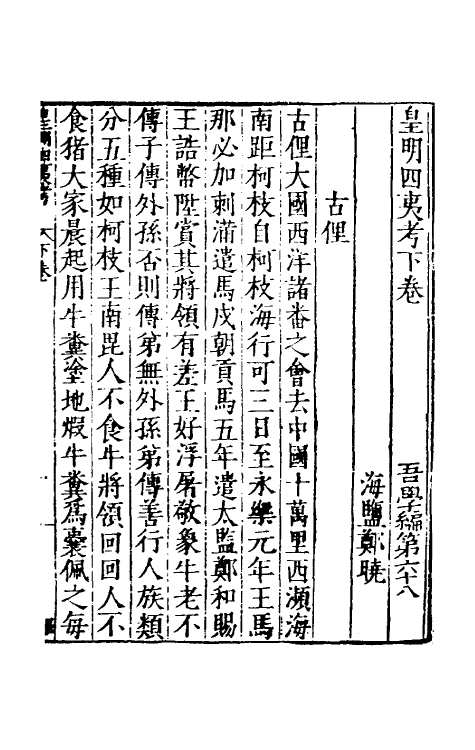 皇明四夷考下卷 吾學編第六十八
海鹽鄭曉
古俚
古俚大國西洋諸番之會去中國十萬里西瀕海
南距柯枝自柯枝海行可三日至永樂元年王馬
那必加剌滿遣馬戍朝貢馬五年遣太監鄭和賜
王誥幣陞賞其將領有差王好浮屠敬象牛老不
傳子傳外孫否則傳弟無外孫弟傳善行人族類
分五種如柯枝王南毘人不食牛將領回回人不
食猪大家晨起用牛糞塗地煆牛糞爲囊佩之每
皇明四夷考 下卷 一